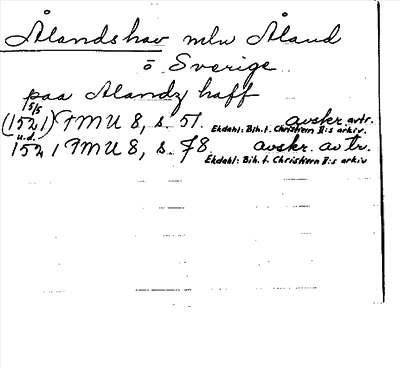 Ålandshav mlw Åland
o Sverige
paa Alandz haff
15/5
(1521) FMU 8, s. 51. avskr. avtr.
Ekdahl: Bih. t. Christiern II:s arkiv.
u.d.
1521 FMU 8, s. 78. avskr. avtr.
Ekdahl: Bih. t. Christiern II:s arkiv